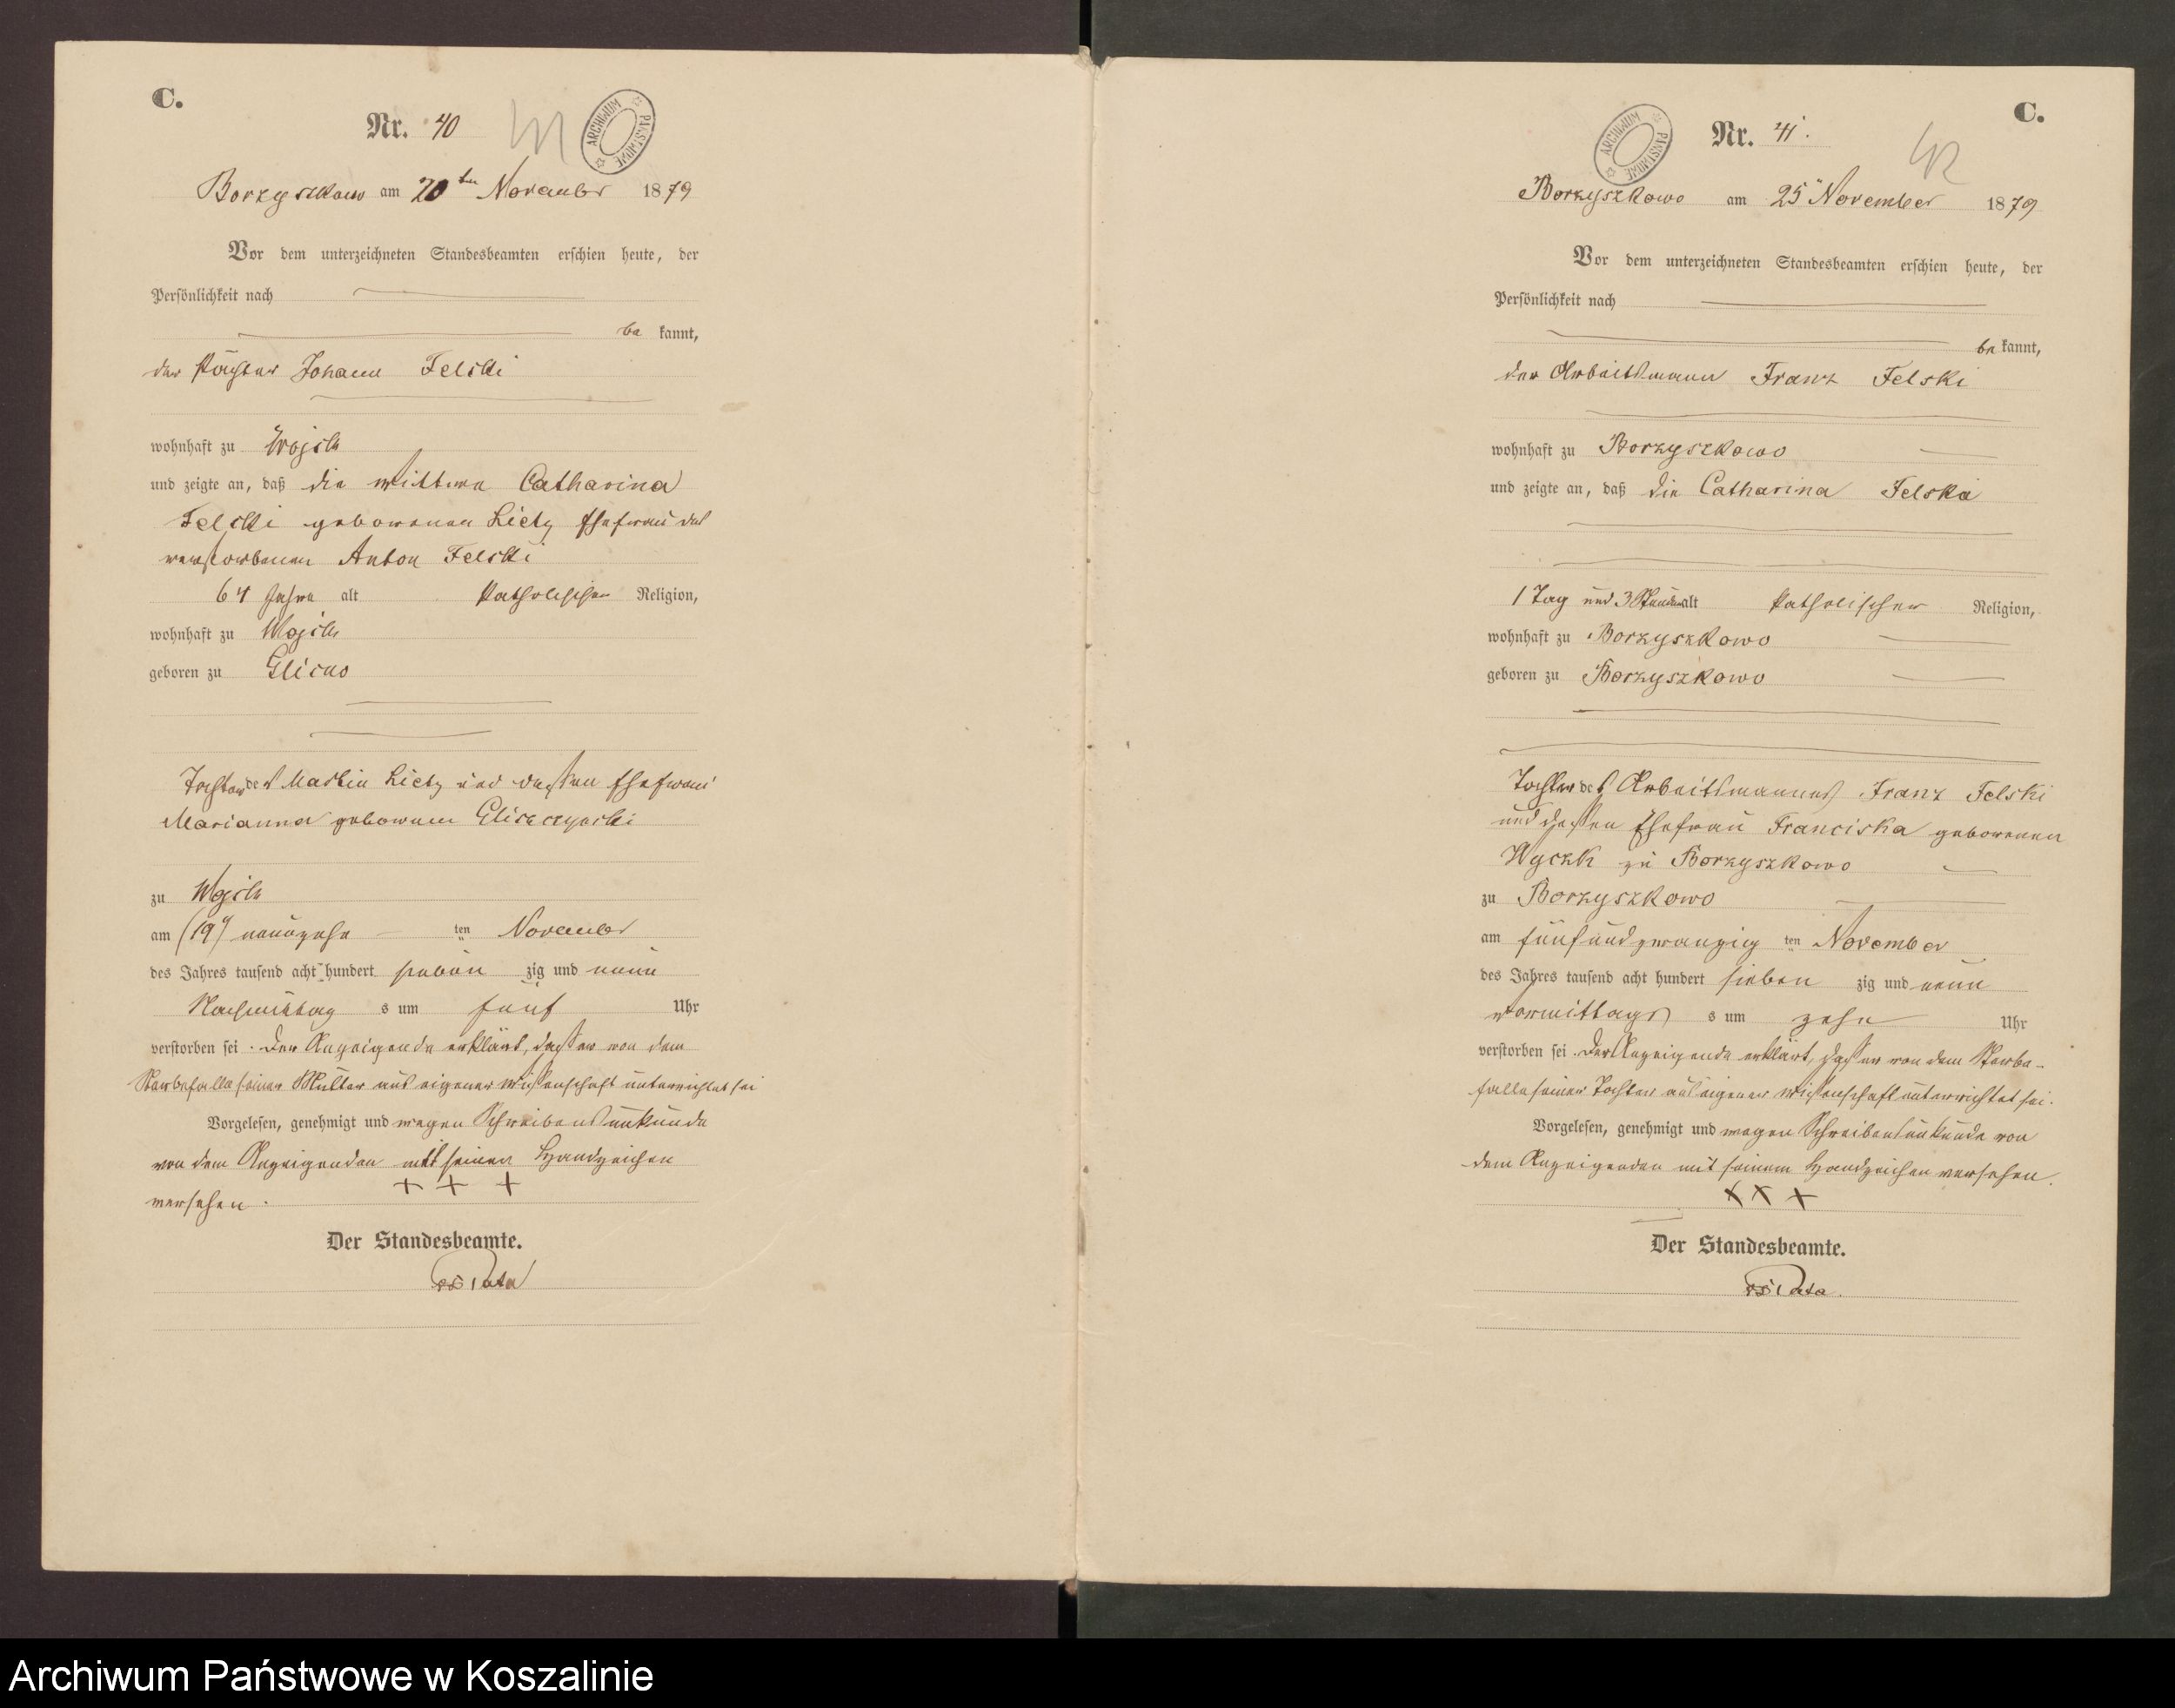 C.
Nr. 40
41
ARCHIWUM PAŃSTWOWE
Borzyszkowo am 20ten November 1879
Vor dem unterzeichneten Standesbeamten erschien heute, der
Persönlichkeit nach
be kannt,
der Pächter Johann Felski
wohnhaft zu Wojsk
und zeigte an, daß die Wittwe Catharina
Felski geborenen Lietz Ehefrau des
verstorbenen Anton Felski
64 Jahre alt katholischer Religion,
wohnhaft zu Wojsk
geboren zu Glisno
Tochter des Martin Lietz und dessen Ehefrau
Marianna geborenen
zu Wojsk
am (19) neunzehn ten November
des Jahres tausend acht hundert sieben zig und neun
Nachmittag s um fünf Uhr
verstorben sei. Der Anzeigende erklärt, dass er von dem
Sterbefalle seiner Mutter aus eigener Wissenschaft unterrichtet sei
Vorgelesen, genehmigt und wegen Schreibensunkunde
von dem Anzeigenden mit seinen Handzeichen
versehen. + + +
Der Standesbeamte.
C.
Nr. 41.
42
ARCHIWUM PAŃSTWOWE
Borzyszkowo am 25 November 1879
Vor dem unterzeichneten Standesbeamten erschien heute, der
Persönlichkeit nach
be kannt,
der Arbeitsmann Franz Felski
wohnhaft zu Borzyszkowo
und zeigte an, daß die Catharina Felska
1 Tag und 3 Stunden alt katholischer Religion,
wohnhaft zu Borzyszkowo
geboren zu Borzyszkowo
Tochter des Arbeitsmannes Franz Felski
und dessen Ehefrau Franciska geborenen
Wyczk zu Borzyszkowo
zu Borzyszkowo
am fünfundzwanzig ten November
des Jahres tausend acht hundert sieben zig und neun
vormittags s um zehn Uhr
verstorben sei. Der Anzeigende erklärt, dass er von dem Sterbe-
falle seiner Tochter aus eigener Wissenschaft unterrichtet sei.
Vorgelesen, genehmigt und wegen Schreibensunkunde von
dem Anzeigenden mit seinem Handzeichen versehen.
+ + +
Der Standesbeamte.
Archiwum Państwowe w Koszalinie